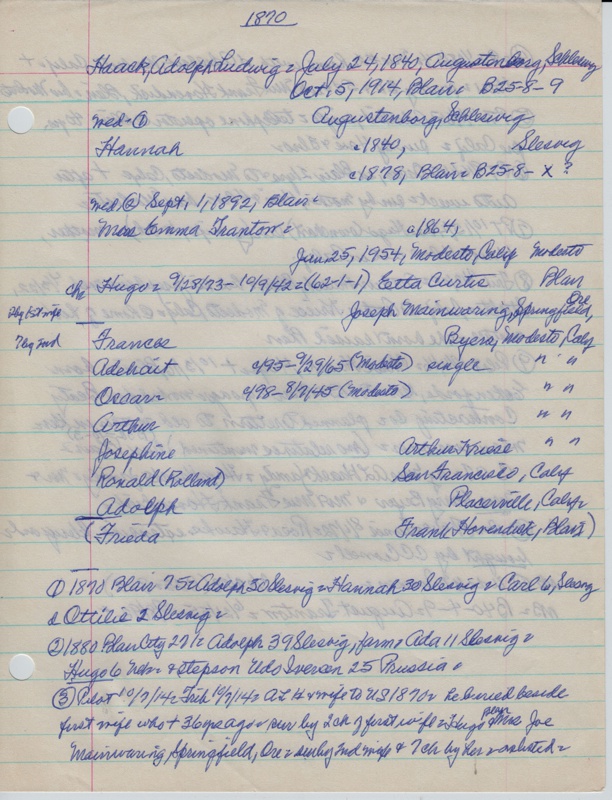 1870
Haack, Adolph Ludwig = July 24, 1840, Augustenborg, Schleswig
Oct. 5, 1914, Blair = B25-8-9
med-① Augustenborg, Schleswig
Hannah c1840, Slesvig
c1878, Blair = B25-8-x?
med ② Sept. 1, 1892, Blair =
Mrs Emma Tranton = c1864,
Jan 25, 1954, Modesto, Calif Modesto
ch: Hugo = 9/28/73-10/9/42 = (62-1-1) Etta Curtis Blair
2 by 1st wife Joseph Mainwaring, Springfield, Ore,
7 by 2nd Frances Byers, Modesto, Calif
Adeheit c/95-9/29/65 (Modesto) single " "
Oscar c/98-8/7/45 (Modesto) " "
Arthur " "
Josephine Arthur Kruse " "
Ronald (Rolland) San Francisco, Calif
Adolph Placerville, Calif =
(Frieda Frank Hovendick, Blair)
① 1870 Blair 75 = Adolph 30 Slesvig = Hannah 30 Slesvig = Carl 6, Slesvig
& Ottilie 2 Slesvig =
② 1880 Blair City 271 = Adolph 39 Slesvig, farm = Ada 11 Slesvig =
Hugo 6 Neb = & stepson Udo Iversen 25 Prussia =
③ Pilot 10/7/14 = Trib 10/7/14 = ALH & wife to US 1870 = he buried beside
first wife who + 36 years ago = sur by 2 ch of first wife = Hugo & Mrs Joe
Mainwaring, Springfield, Ore = sur by 2nd wife & 7 ch by her =